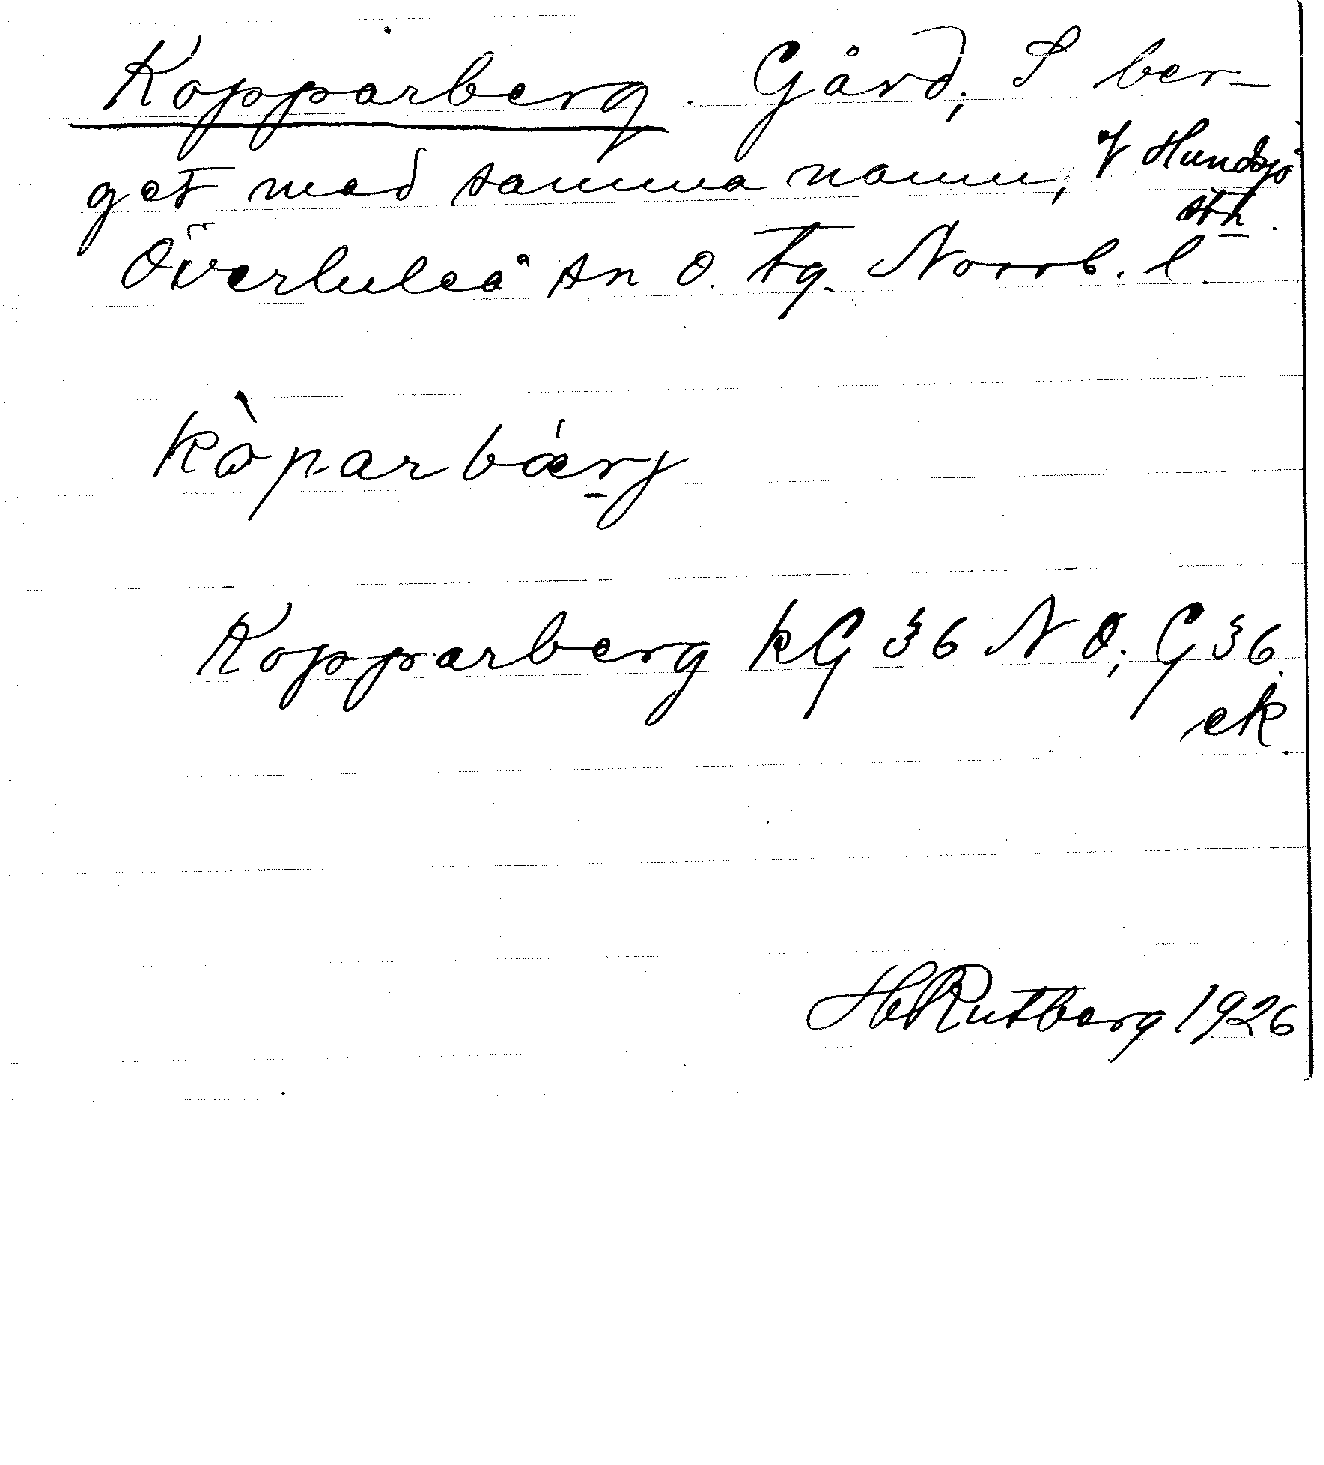 Kopparberg. Gård, S ber-
get med samma namn, Hundsjö
Överluleå sn o. tg. Norrb. l.
kòparbǽrj
Kopparberg kG 36 NO; G 36
ek.
H Rutberg 1926